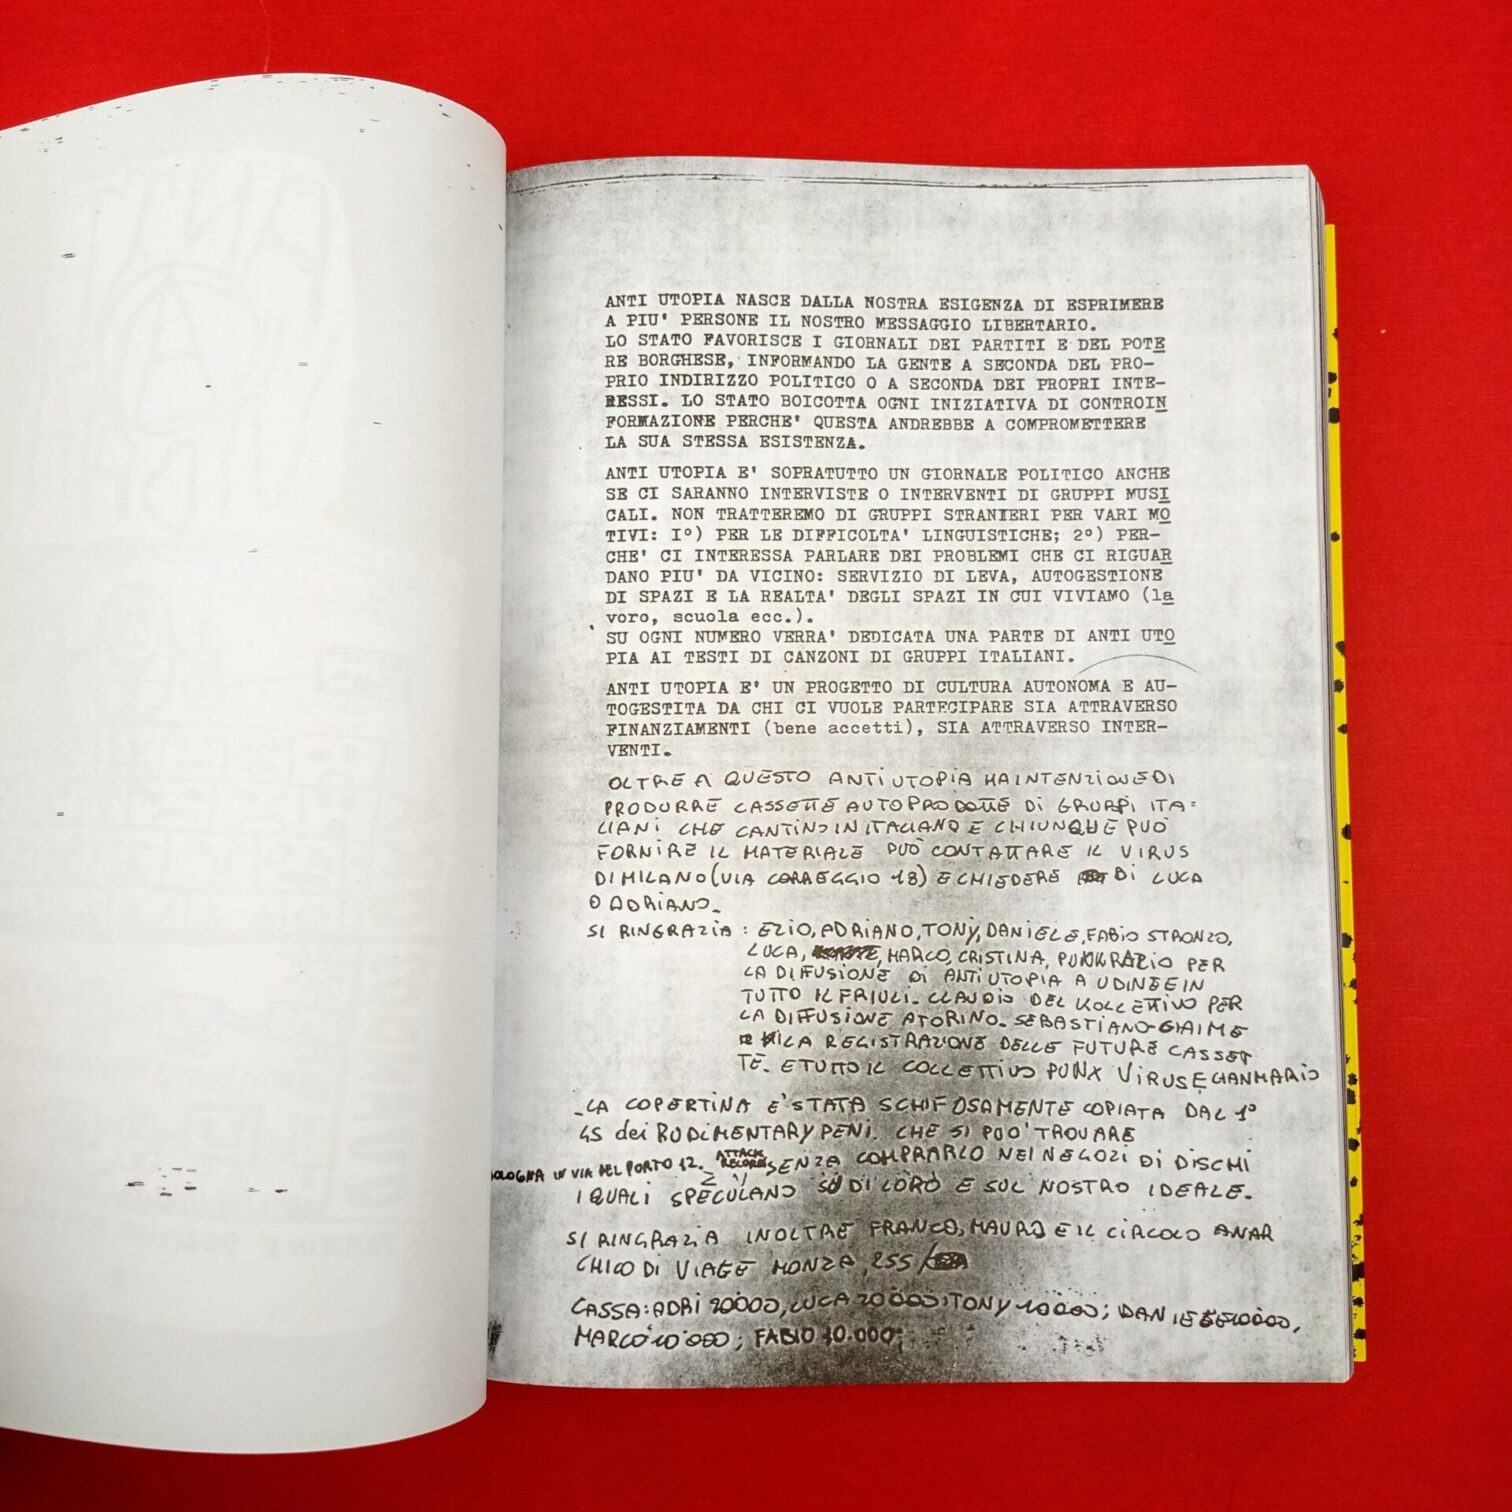 ANTI UTOPIA NASCE DALLA NOSTRA ESIGENZA DI ESPRIMERE
A PIU' PERSONE IL NOSTRO MESSAGGIO LIBERTARIO.
LO STATO FAVORISCE I GIORNALI DEI PARTITI E DEL POTE
RE BORGHESE, INFORMANDO LA GENTE A SECONDA DEL PRO-
PRIO INDIRIZZO POLITICO O A SECONDA DEI PROPRI INTE-
RESSI. LO STATO BOICOTTA OGNI INIZIATIVA DI CONTROIN
FORMAZIONE PERCHE' QUESTA ANDREBBE A COMPROMETTERE
LA SUA STESSA ESISTENZA.
ANTI UTOPIA E' SOPRATUTTO UN GIORNALE POLITICO ANCHE
SE CI SARANNO INTERVISTE O INTERVENTI DI GRUPPI MUSI
CALI. NON TRATTEREMO DI GRUPPI STRANIERI PER VARI MO
TIVI: I°) PER LE DIFFICOLTA' LINGUISTICHE; 2°) PER-
CHE' CI INTERESSA PARLARE DEI PROBLEMI CHE CI RIGUAR
DANO PIU' DA VICINO: SERVIZIO DI LEVA, AUTOGESTIONE
DI SPAZI E LA REALTA' DEGLI SPAZI IN CUI VIVIAMO (la
voro, scuola ecc.).
SU OGNI NUMERO VERRA' DEDICATA UNA PARTE DI ANTI UTO
PIA AI TESTI DI CANZONI DI GRUPPI ITALIANI.
ANTI UTOPIA E' UN PROGETTO DI CULTURA AUTONOMA E AU-
TOGESTITA DA CHI CI VUOLE PARTECIPARE SIA ATTRAVERSO
FINANZIAMENTI (bene accetti), SIA ATTRAVERSO INTER-
VENTI.
OLTRE A QUESTO ANTI UTOPIA HA INTENZIONE DI
PRODURRE CASSETTE AUTOPRODOTTE DI GRUPPI ITA=
LIANI CHE CANTINO IN ITALIANO E CHIUNQUE PUO'
FORNIRE IL MATERIALE PUO' CONTATTARE IL VIRUS
DI MILANO (VIA CORREGGIO 18) E CHIEDERE DI LUCA
O ADRIANO.
SI RINGRAZIA: EZIO, ADRIANO, TONY, DANIELE, FABIO STRONZO,
LUCA, MARCO, CRISTINA, PUNKRAZIO PER
LA DIFFUSIONE DI ANTI UTOPIA A UDINE E IN
TUTTO IL FRIULI. CLAUDIO DEL KOLLETTIVO PER
LA DIFFUSIONE A TORINO. SEBASTIANO GIAIME
LA REGISTRAZIONE DELLE FUTURE CASSET
TE. E TUTTO IL COLLETTIVO PUNX VIRUS E GIANMARIO
-LA COPERTINA E' STATA SCHIFOSAMENTE COPIATA DAL 1°
45 dei RUDIMENTARY PENI. CHE SI PUO' TROUARE
BOLOGNA IN VIA DEL PORTO 12. ATTACK RECORDS SENZA COMPRARLO NEI NEGOZI DI DISCHI
I QUALI SPECULANO SU DI LORO E SUL NOSTRO IDEALE.
SI RINGRAZIA INOLTRE FRANCO, MAURO E IL CIRCOLO ANAR
CHICO DI VIALE MONZA, 255
CASSA: ADRI 20000, LUCA 20000; TONY 10000; DANIELE 10000,
MARCO 10'000; FABIO 10.000;